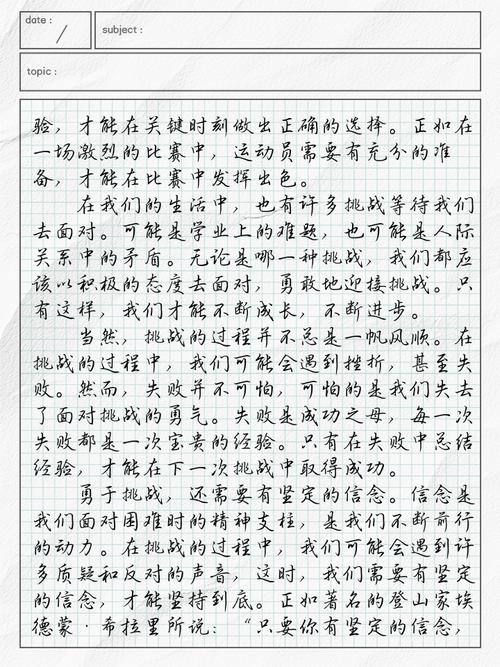 date :
subject :
topic :
验，才能在关键时刻做出正确的选择。正如在
一场激烈的比赛中，运动员需要有充分的准
备，才能在比赛中发挥出色。
在我们的生活中，也有许多挑战等待我们
去面对。可能是学业上的难题，也可能是人际
关系中的矛盾。无论是哪一种挑战，我们都应
该以积极的态度去面对，勇敢地迎接挑战。只
有这样，我们才能不断成长，不断进步。
当然，挑战的过程并不总是一帆风顺。在
挑战的过程中，我们可能会遇到挫折，甚至失
败。然而，失败并不可怕，可怕的是我们失去
了面对挑战的勇气。失败是成功之母，每一次
失败都是一次宝贵的经验。只有在失败中总结
经验，才能在下一次挑战中取得成功。
勇于挑战，还需要有坚定的信念。信念是
我们面对困难时的精神支柱，是我们不断前行
的动力。在挑战的过程中，我们可能会遇到许
多质疑和反对的声音，这时，我们需要有坚定
的信念，才能坚持到底。正如著名的登山家埃
德蒙·希拉里所说：“只要你有坚定的信念，